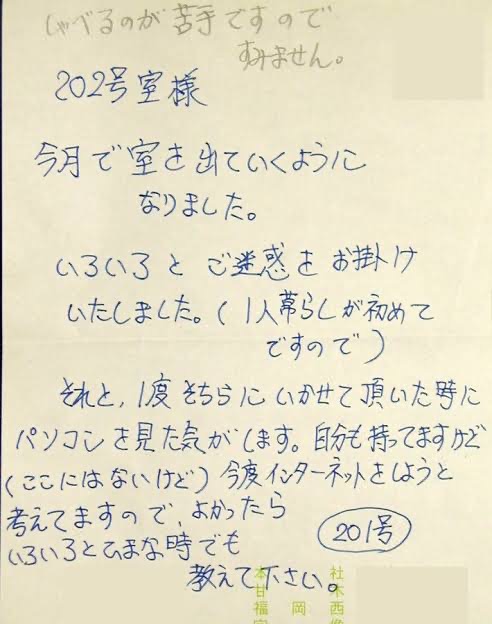 しゃべるのが苦手ですので
すみません。
202号室様
今月で室を出ていくように
なりました。
いろいろとご迷惑をお掛け
いたしました。(1人暮らしが初めて
ですので)
それと、1度そちらにいかせて頂いた時に
パソコンを見た気がします。自分も持ってますけど
(ここにはないけど)今度インターネットをしようと
考えてますので、よかったら
いろいろとひまな時でも
教えて下さい。
201号
本 社
甘 木
福 岡 西